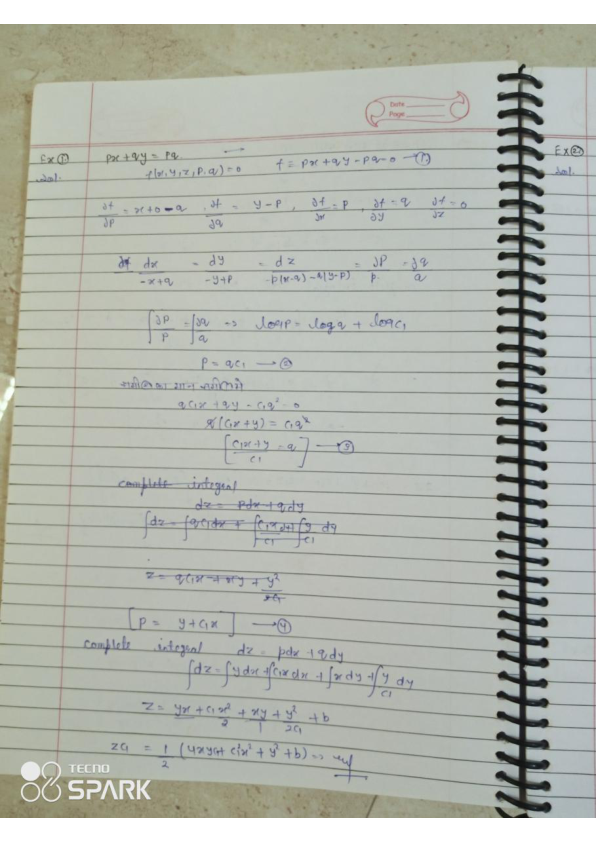 Date
Page
Ex ① px + qy = pq
Sol. f(x, y, z, p, q) = 0 f = px + qy - pq = 0 → ①
∂f/∂p = x + 0 - q , ∂f/∂q = y - p , ∂f/∂x = p , ∂f/∂y = q ∂f/∂z = 0
dx/-x+q = dy/-y+p = dz/-p(x-q)-q(y-p) = ∂p/p = ∂q/q
∫∂p/p = ∫∂q/q → log p = log q + log c₁
p = qc₁ → ②
का मान
qc₁x + qy - c₁q² = 0
q(c₁x + y) = c₁q²
[c₁x + y/c₁ = q] → ③
complete integral
dz = pdx + qdy
∫dz = ∫qc₁dx +
z = qc₁x + xy + y²/2c₁
[p = y + c₁x] → ④
complete integral dz = pdx + qdy
∫dz = ∫ydx + ∫c₁xdx + ∫xdy + ∫y/c₁ dy
z = yx + c₁x²/2 + xy/1 + y²/2c₁ + b
zc₁ = 1/2 (4xyc₁ + c₁²x² + y² + b) ⇒
Ex ②
Sol.
TECNO
SPARK